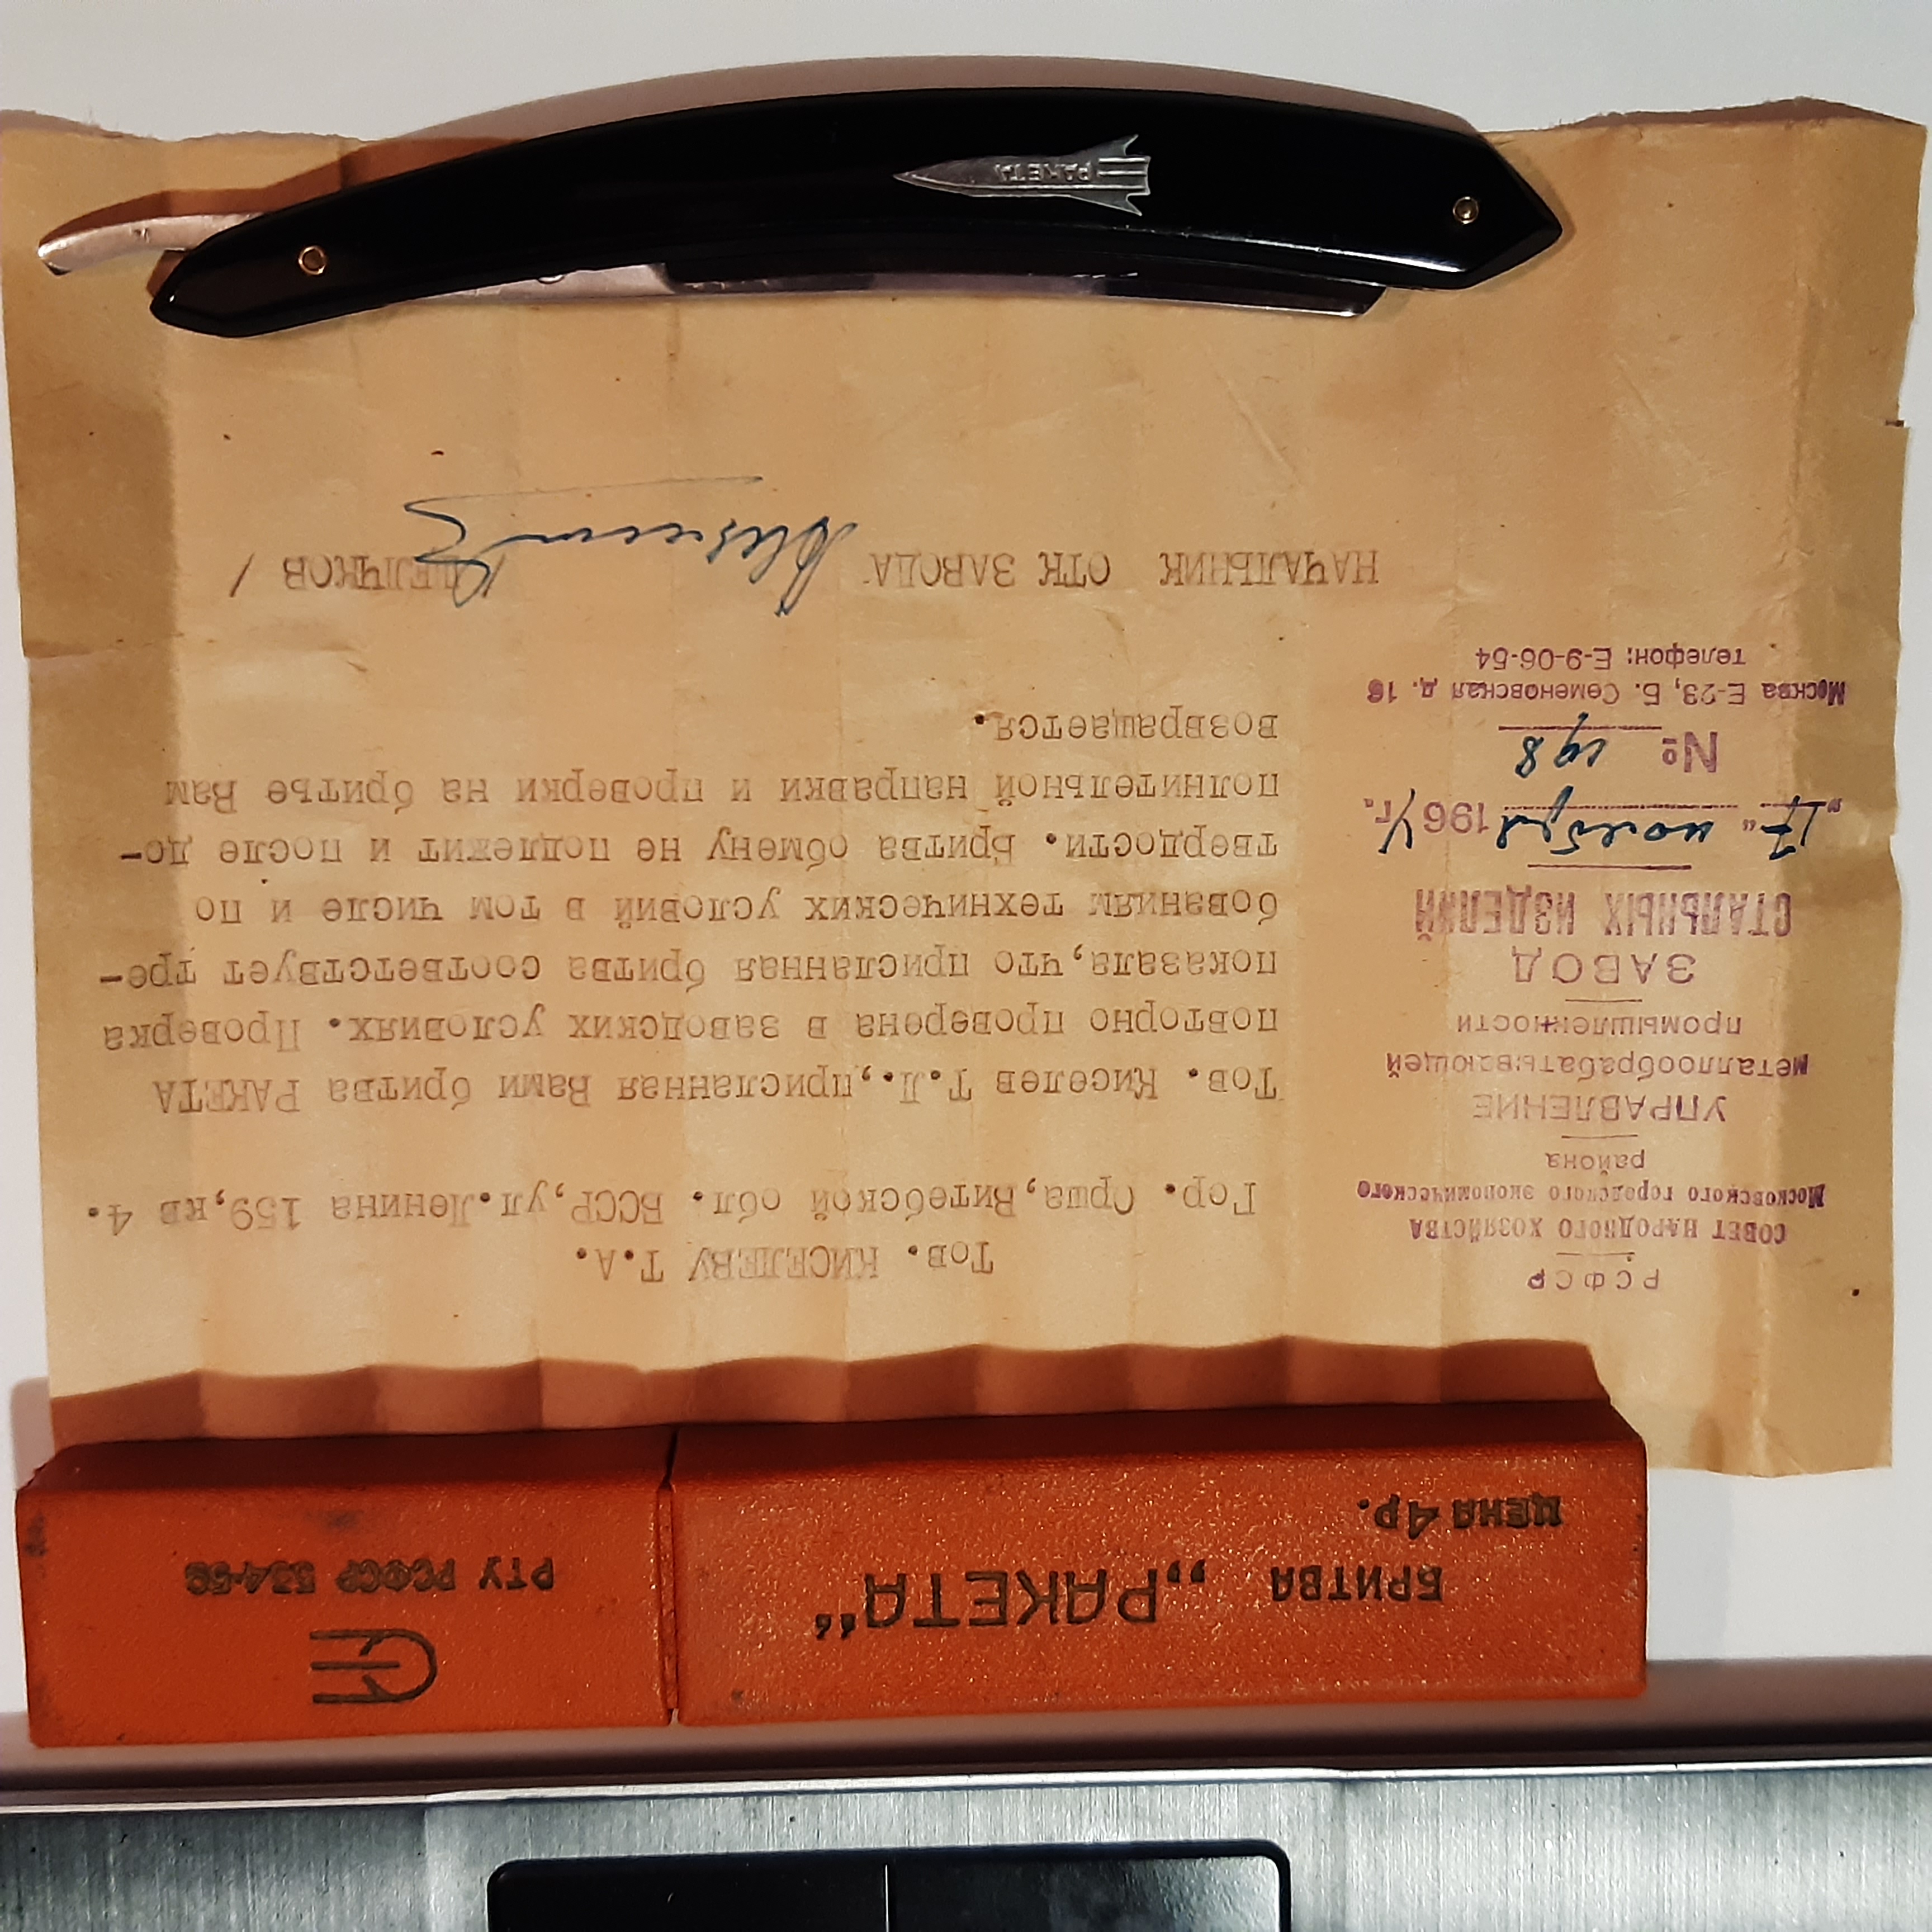 БРИТВА „РАКЕТА“
ЦЕНА 4р.
РТУ РСФСР 534-59
РСФСР
СОВЕТ НАРОДНОГО ХОЗЯЙСТВА
Московского городского экономического
района
УПРАВЛЕНИЕ
металлообрабатывающей
промышленности
ЗАВОД
СТАЛЬНЫХ ИЗДЕЛИЙ
„17“ ноября 1964г.
№ 198
Москва Е-23, Б. Семеновская д. 16
телефон: Е-9-06-54
Тов. КИСЕЛЕВУ Т.А.
Гор. Орша,Витебской обл. БССР,ул.Ленина 159,кв 4.
Тов. Киселев Т.Л.,присланная Вами бритва РАКЕТА
повторно проверена в заводских условиях. Проверка
показала,что присланная бритва соответствует тре-
бованиям технических условий в том числе и по
твердости. Бритва обмену не подлежит и после до-
полнительной направки и проверки на бритье Вам
возвращается.
НАЧАЛЬНИК ОТК ЗАВОДА
РАКЕТА